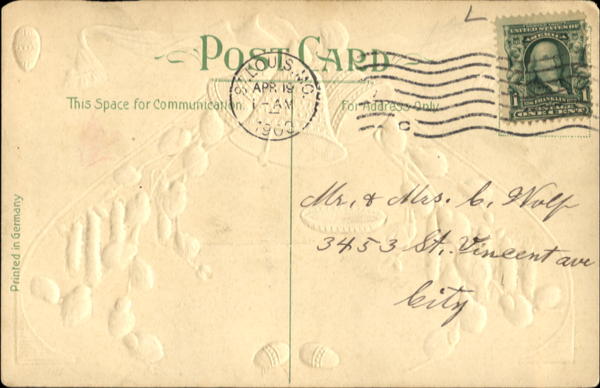 POST CARD
ST. LOUIS, MO.
APR 19
1-AM
This Space for Communication.
For Address Only.
C
UNITED STATES OF
AMERICA
FRANKLIN
1
ONE CENT
1
Mr. & Mrs. C. Wolf
3453 St. Vincent ave
City
Printed in Germany